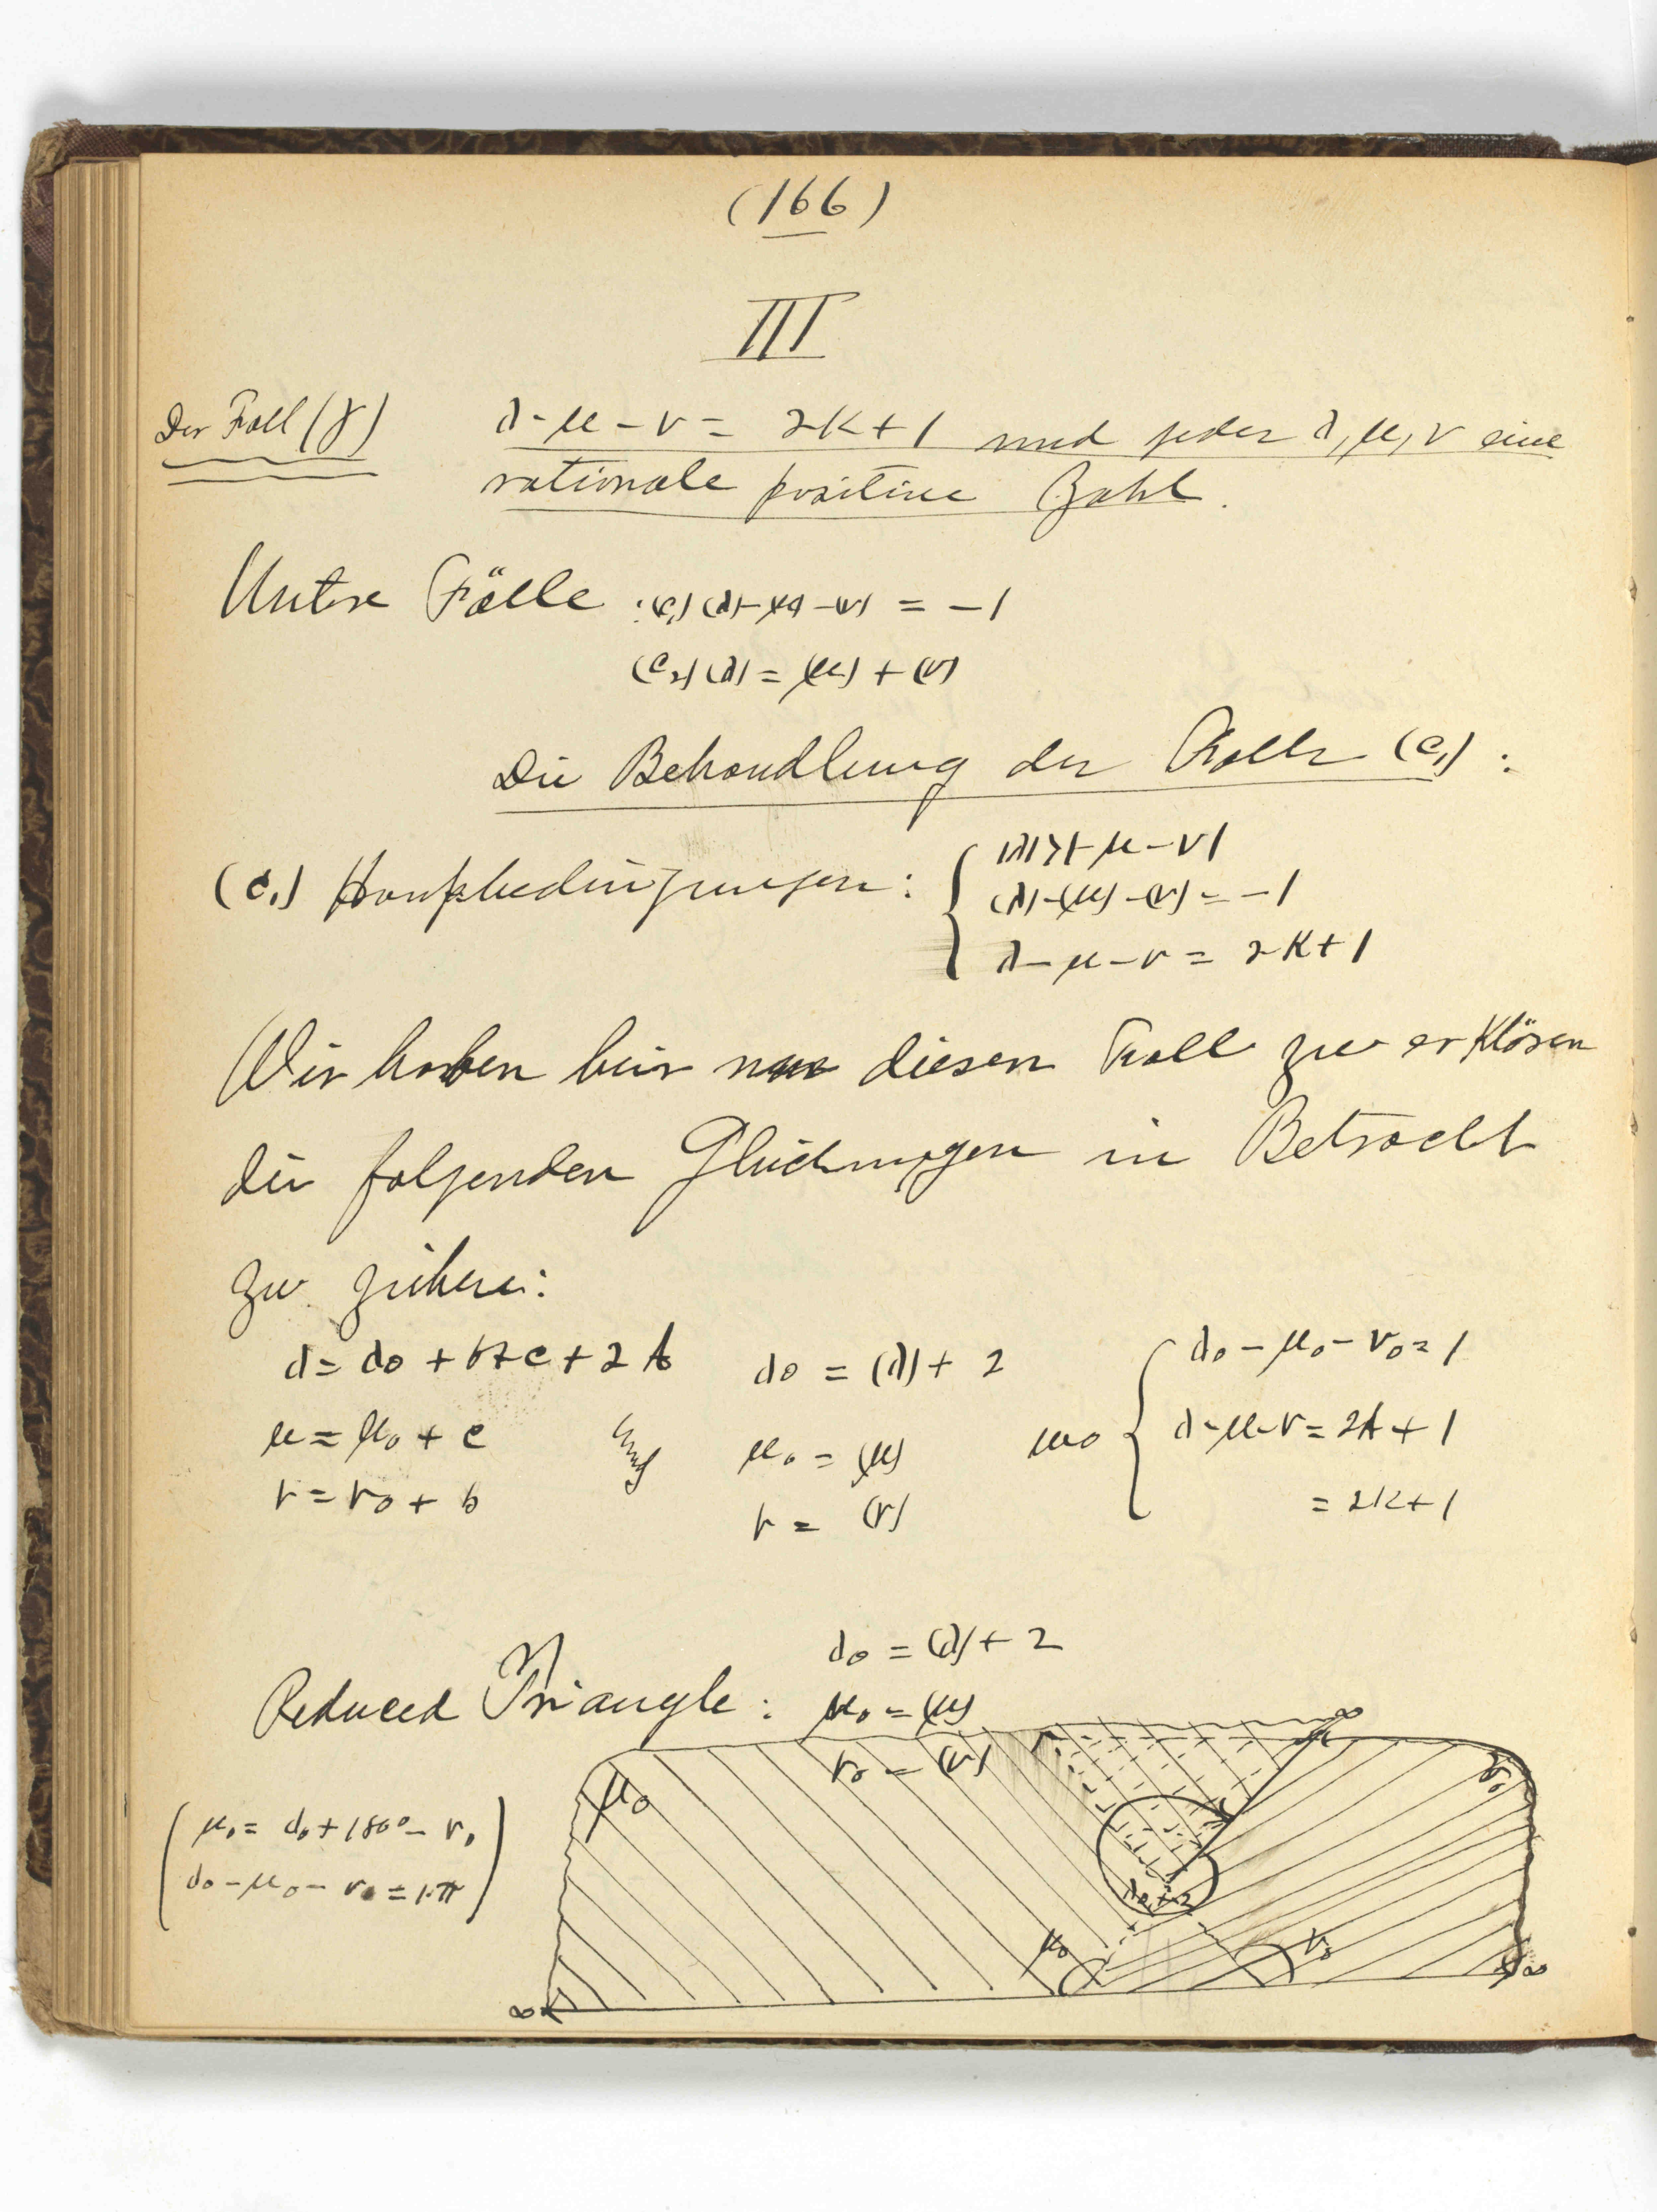 (166)
III
Der Fall (γ) λ-μ-ν = 2K+1 und jeder λ, μ, ν eine
rationale positive Zahl.
Untere Fälle : (c₁) (λ)-(μ)-(ν) = -1
(c₂) (λ) = (μ) + (ν)
Die Behandlung der Falls (c₁) :
(c₁) Hauptbedingungen : { |λ|>|-μ-ν|
(λ)-(μ)-(ν) = -1
λ-μ-ν = 2K+1
Wir haben hier diesen Fall zu erklären
die folgenden Gleichungen in Betracht
zu ziehen:
λ = λ₀ + b+c+2A λ₀ = (λ) + 2 wo { λ₀-μ₀-ν₀ = 1
μ = μ₀ + c und μ₀ = (μ) λ-μ-ν = 2A+1
ν = ν₀ + b ν = (ν) = 2K+1
λ₀ = (λ) + 2
Reduced Triangle : μ₀ = (μ)
ν₀ = (ν)
∞
μ₀
ν₀
( μ₀ = λ₀+180°-ν₀
λ₀-μ₀-ν₀ = 1·π )
μ₀
ν₀
∞
∞